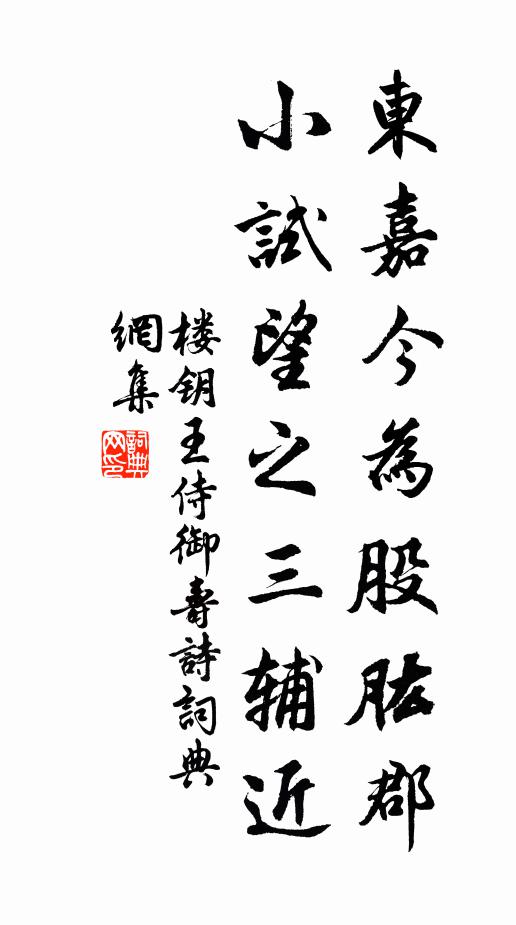 東嘉今為股肱郡
小試望之三辅近
楼钥王侍御壽詩詞典
網集
詞典
网印